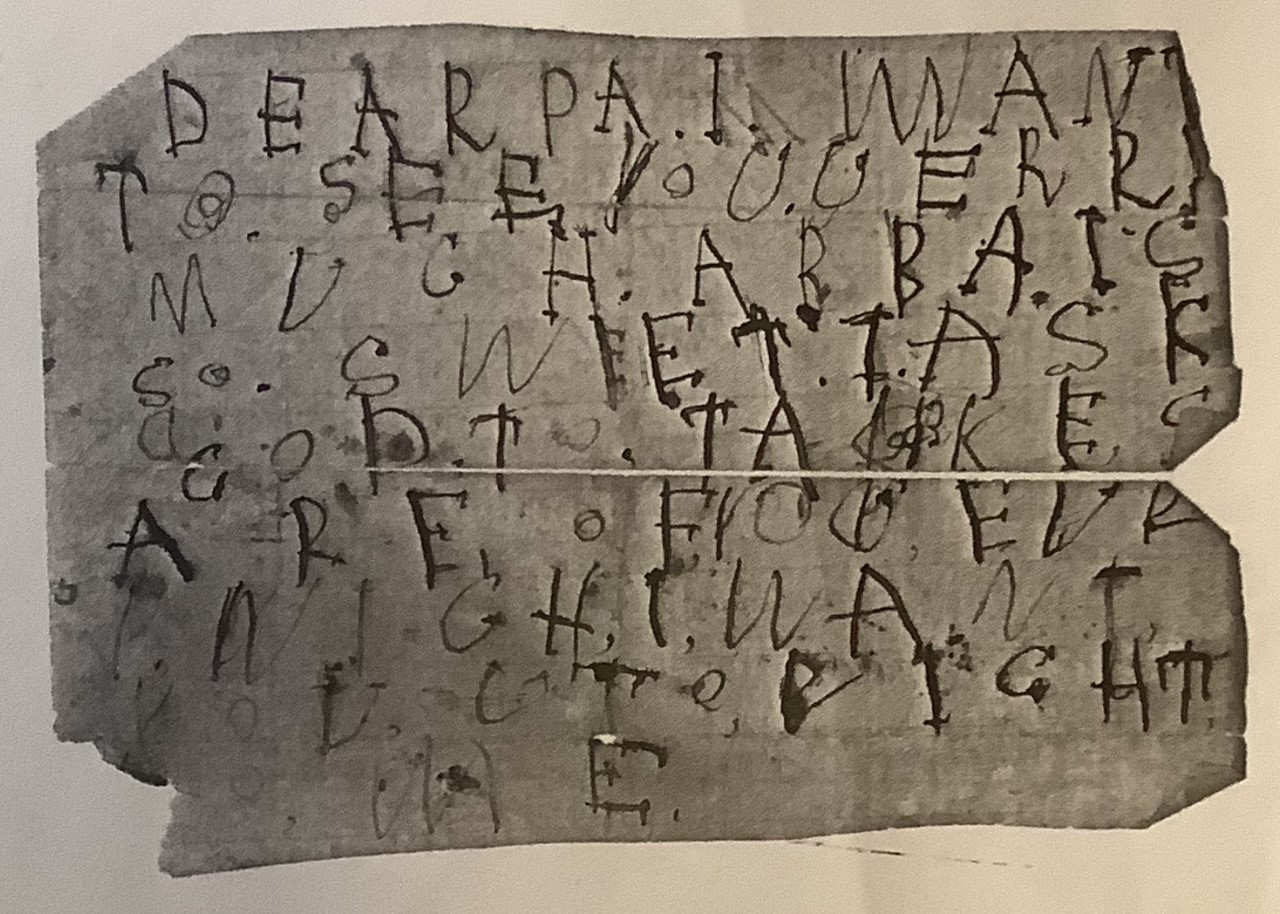 DEAR PA. I. WANT
TO. SEE YOU. UERRI
MUCH. ARBBA. IS
SO. SWEET. I. ASK
GOD. TO. TAKE. C
ARE, OF, YOU, EVR
I. NIGH, I. WANT.
YOU. TO, RIGHT.
ME.